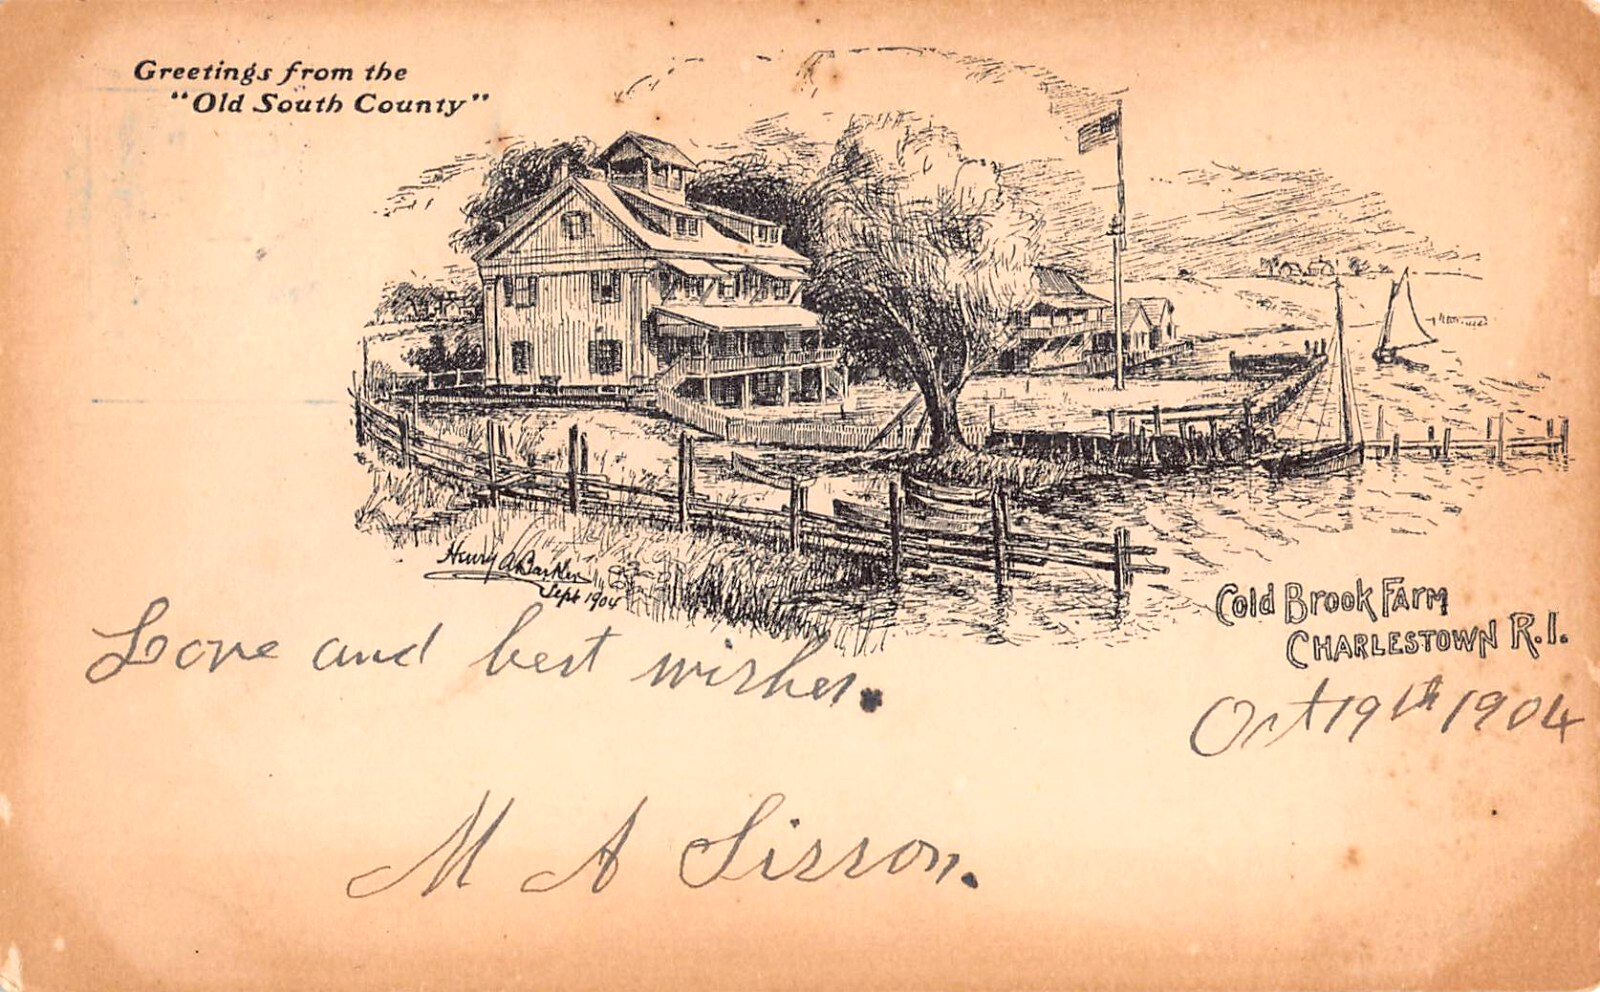 Greetings from the
"Old South County"
Henry A Barker
Sept 1904
Cold Brook Farm
Charlestown R.I.
Love and best wishes.
Oct 19th 1904
M A Sisson.